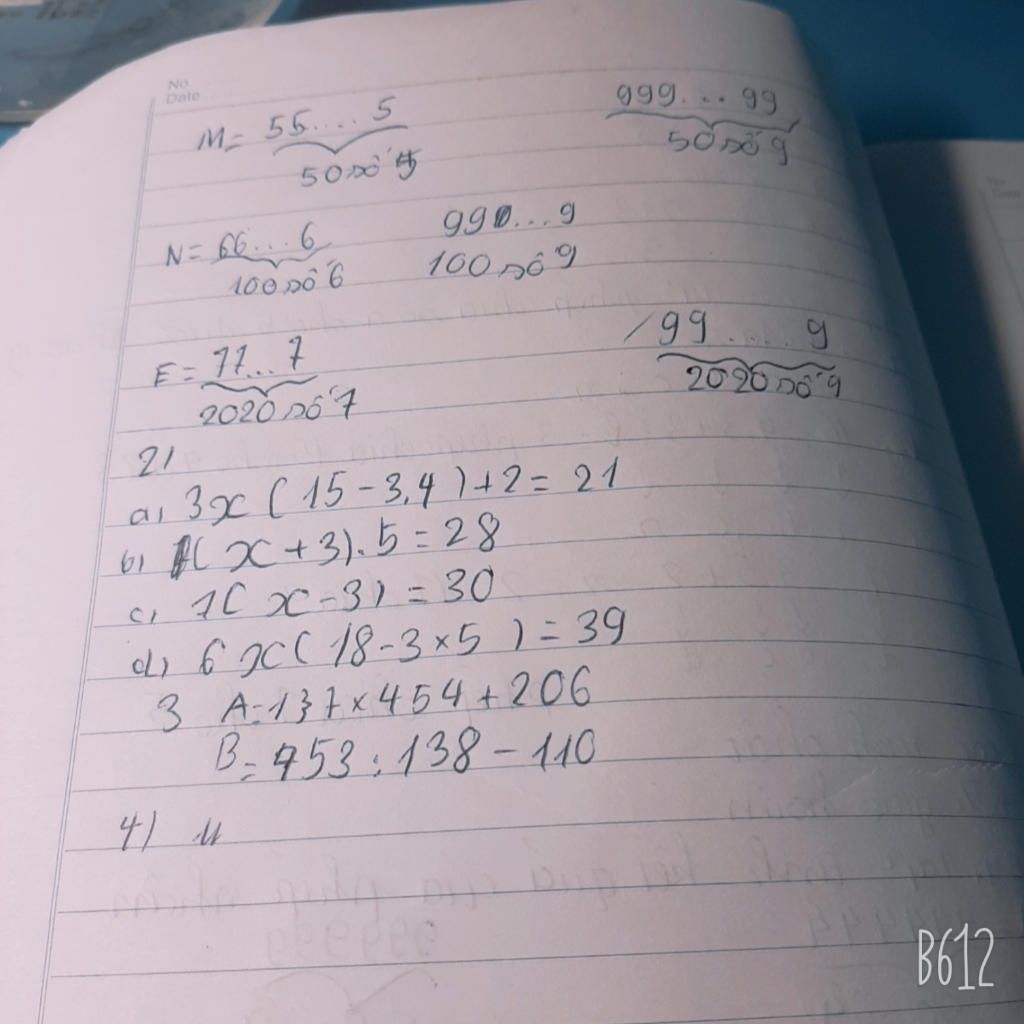 No.
Date
M= 55....5 999...99
50 số 5 50 số 9
N= 66...6 999...9
100 số 6 100 số 9
E= 77...7 99....9
2020 số 7 2020 số 9
2)
a, 3x ( 15 - 3,4 ) + 2 = 21
b) ( x + 3). 5 = 28
c, 7( x - 3) = 30
d), 6 x ( 18 - 3 × 5 ) = 39
3 A = 137 × 454 + 206
B = 453 : 138 - 110
4)
B612